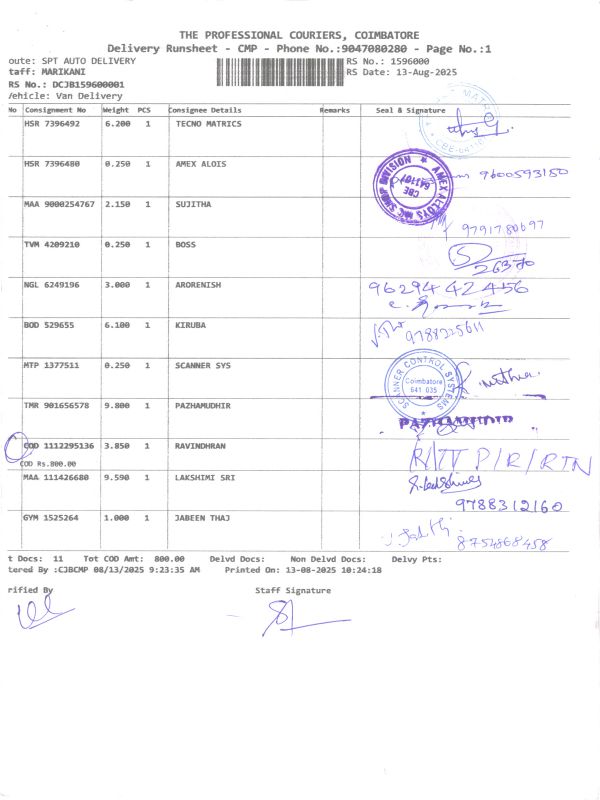 THE PROFESSIONAL COURIERS, COIMBATORE
Delivery Runsheet - CMP - Phone No.:9047080280 - Page No.:1
oute: SPT AUTO DELIVERY RS No.: 1596000
taff: MARIKANI RS Date: 13-Aug-2025
RS No.: DCJB159600001
Vehicle: Van Delivery
No Consignment No Weight PCS Consignee Details Remarks Seal & Signature
HSR 7396492 6.200 1 TECNO MATRICS
HSR 7396480 0.250 1 AMEX ALOIS 9600593150
AMEX ALLOYS M/C SHOP DIVISION CBE 641107
MAA 9000254767 2.150 1 SUJITHA 9791780697
TVM 4209210 0.250 1 BOSS 26370
NGL 6249196 3.000 1 ARORENISH 9629442456
BOD 529655 6.100 1 KIRUBA 9788225611
MTP 1377511 0.250 1 SCANNER SYS
SCANNER CONTROL SYSTEMS Coimbatore 641 035
TMR 901656578 9.800 1 PAZHAMUDHIR
COD 1112295136 3.850 1 RAVINDHRAN
COD Rs.800.00
MAA 111426680 9.590 1 LAKSHIMI SRI 9788312160
GYM 1525264 1.000 1 JABEEN THAJ 8754868458
t Docs: 11 Tot COD Amt: 800.00 Delvd Docs: Non Delvd Docs: Delvy Pts:
tered By :CJBCMP 08/13/2025 9:23:35 AM Printed On: 13-08-2025 10:24:18
rified By Staff Signature